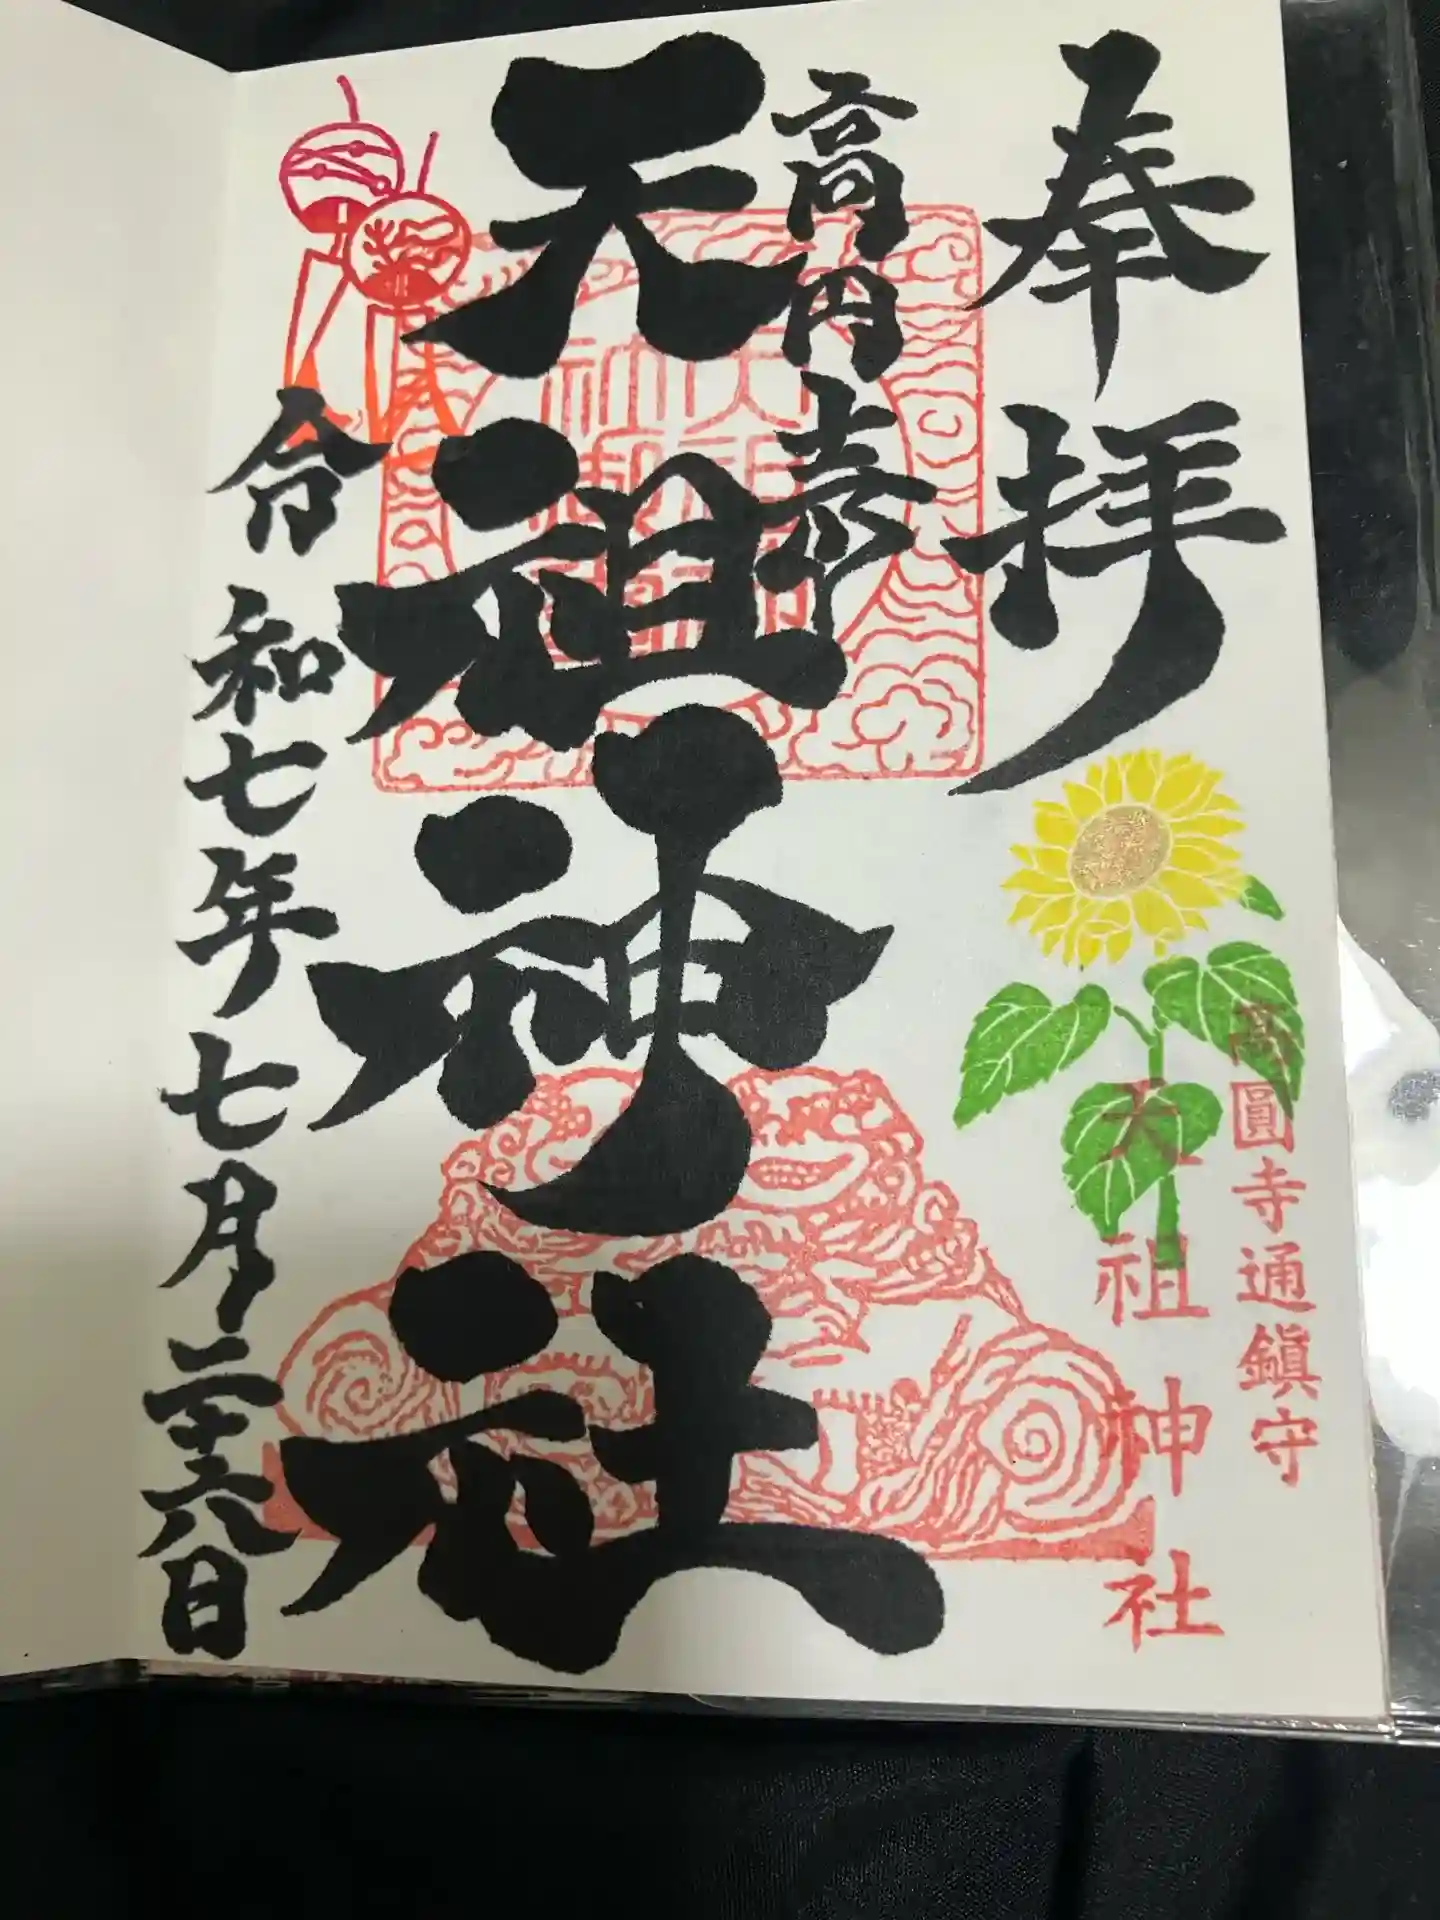 奉拝
高円寺
天祖神社
令和七年七月二十六日
高圓寺通鎮守
天祖神社